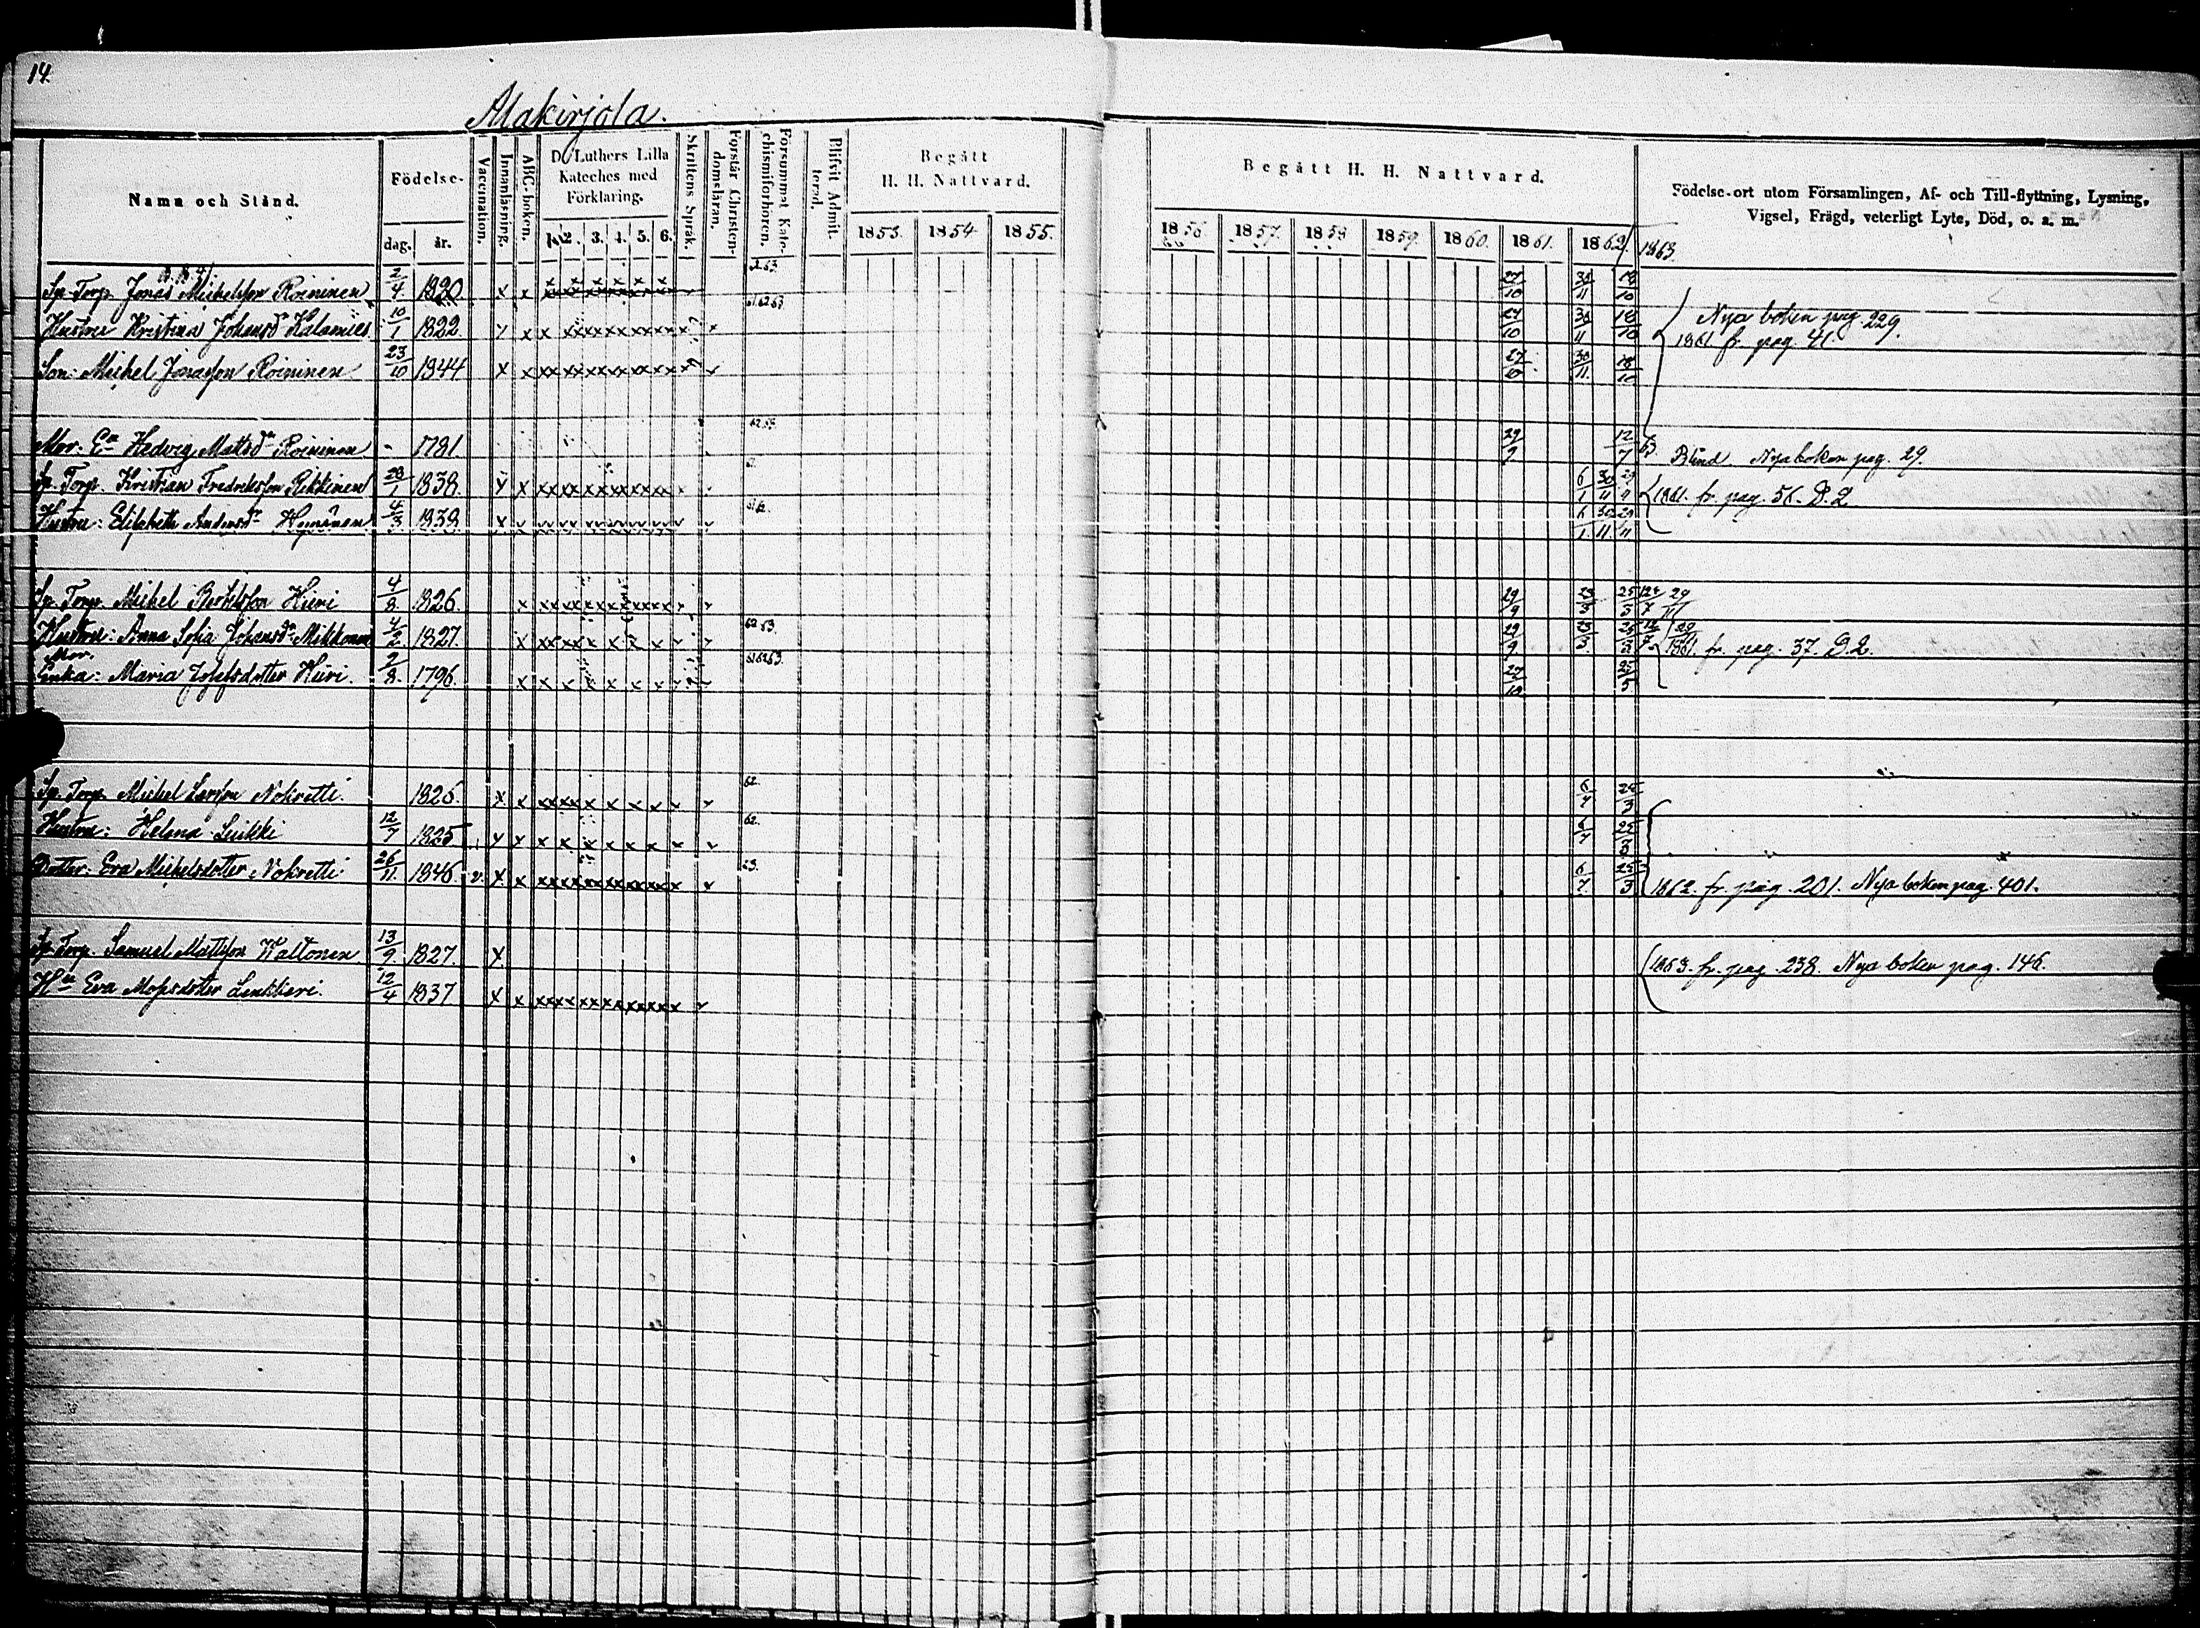 14.
Alakirjola.
Namn och Stånd. Födelse- dag. år. Vaccination. Innanläsning. ABC-boken. D. Luthers Lilla Kateches med Förklaring. 1. 2. 3. 4. 5. 6. Skriftens Språk. Förstår Christendomsläran. Försummat Katechismiförhören. Blifvit Admitterad. Begått H. H. Nattvard. 1853. 1854 1855.
Begått H. H. Nattvard. 1856 1857. 1858 1859. 1860. 1861. 1862 1863.
Födelse-ort utom Församlingen, Af- och Till-flyttning, Lysning, Vigsel, Frägd, veterligt Lyte, Död, o. a. m.
Sp. Torp. Jonas Michelsson Roininen 2/4 1820 Nya boken pag. 229.
Hustru Kristina Johansdr Kalamies 10/1 1822. 61 62 63 27/10 30/11 18/10 1861 fr. pag. 41.
Son: Michel Jonasson Roininen 23/10 1844 27/10 30/11 18/10
Mor: Ea Hedvig Mattsdr Roininen - 1781 62 63 29/9 12/7 63 Blind. Nya boken pag. 29.
Sp. Torp. Kristian Fredriksson Rikkinen 28/1 1838. 6/1 30/11 29/11 1861. fr. pag. 56. D. 2
Hustru: Elisabeth Andersdr Hyvönen 4/3 1838. 61 62 6/1 30/11 29/11
Sp. Torp. Michel Bertilsson Hiiri 4/8 1826. 29/9 23/3 25/3
Hustru: Anna Sofia Johansdr Mikkonen 4/2 1827. 62 63. 29/9 23/3 25/3 1861. fr. pag. 37. D. 2.
Mor.
Enka: Maria Josefsdotter Hiiri. 9/8 1796. 61 62 63. 27/10 25/5
Sp. Torp. Michel Larsson Nokretti. 1826. 62. 6/7 25/3
Hustru: Helena Leikki 12/7 1825 62. 6/7 25/3
Dotter: Eva Michelsdotter Nokretti 26/11 1846 v. 6/7 25/3 1862. fr. pag. 201. Nya boken pag. 401.
Sp. Torp. Samuel Mattsson Waltonen 13/9 1827. 1863. fr. pag. 238. Nya boken pag. 146.
Hu Eva Mosesdotter Leukkeri. 12/4 1837